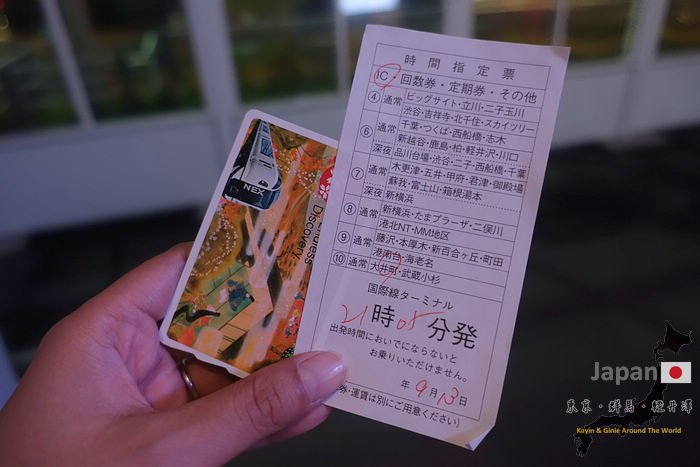 時間指定票
IC・回数券・定期券・その他
④ 通常 ビッグサイト・立川・二子玉川
渋谷・吉祥寺・北千住・スカイツリー
⑥ 通常 千葉・つくば・西船橋・志木
新越谷・鹿島・柏・軽井沢・川口
深夜 品川台場・渋谷・二子・西船橋・千葉
⑦ 通常 木更津・五井・甲府・君津・御殿場
蘇我・富士山・箱根湯本
深夜 新横浜
⑧ 通常 新横浜・たまプラーザ・二俣川
港北NT・MM地区
⑨ 通常 藤沢・本厚木・新百合ヶ丘・町田
港南台・海老名
⑩ 通常 大井町・武蔵小杉
国際線ターミナル
21時05分発
出発時間においでにならないと
お乗りいただけません。
年 9月13日
券・運賃は別にご用意ください)
NEX
Discovery
Japan
東京・群馬・輕井澤
Kayin & Ginie Around The World